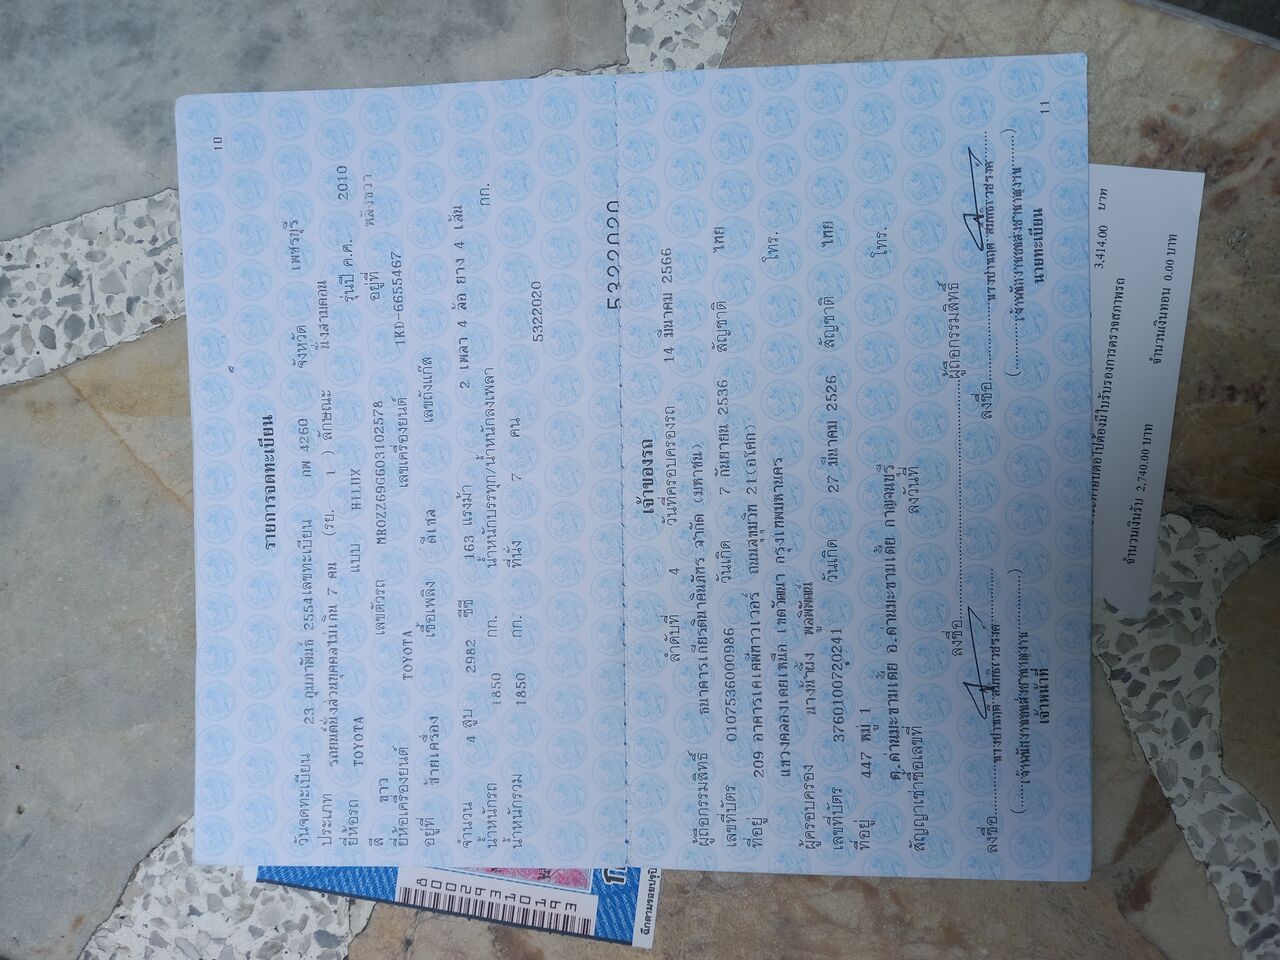 10
รายการจดทะเบียน
วันจดทะเบียน 23 กุมภาพันธ์ 2554 เลขทะเบียน กพ 4260 จังหวัด เพชรบุรี
ประเภท รถยนต์นั่งส่วนบุคคลไม่เกิน 7 คน (รย. 1 ) ลักษณะ นั่งสามตอน
ยี่ห้อรถ TOYOTA แบบ HILUX รุ่นปี ค.ศ. 2010
สี ขาว เลขตัวรถ MROZZ69G603102578 อยู่ที่ หลังขวา
ยี่ห้อเครื่องยนต์ TOYOTA เลขเครื่องยนต์ 1KD-6655467
อยู่ที่ ซ้ายเครื่อง เชื้อเพลิง ดีเซล เลขถังแก๊ส
จำนวน 4 สูบ 2982 ซีซี 163 แรงม้า 2 เพลา 4 ล้อ ยาง 4 เส้น
น้ำหนักรถ 1850 กก. น้ำหนักบรรทุก/น้ำหนักลงเพลา กก.
น้ำหนักรวม 1850 กก. ที่นั่ง 7 คน
5322020
5322020
เจ้าของรถ
ลำดับที่ 4 วันที่ครอบครองรถ 14 มีนาคม 2566
ผู้ถือกรรมสิทธิ์ ธนาคารเกียรตินาคินภัทร จำกัด (มหาชน)
เลขที่บัตร 0107536000986 วันเกิด 7 กันยายน 2536 สัญชาติ ไทย
ที่อยู่ 209 อาคารเคเคพีทาวเวอร์ ถนนสุขุมวิท 21(อโศก)
แขวงคลองเตยเหนือ เขตวัฒนา กรุงเทพมหานคร โทร.
ผู้ครอบครอง นางน้ำผึ้ง พูลพิพัฒน์
เลขที่บัตร 3760100720241 วันเกิด 27 มีนาคม 2526 สัญชาติ ไทย
ที่อยู่ 447 หมู่ 1
ต.ด่านมะขามเตี้ย อ.ด่านมะขามเตี้ย กาญจนบุรี โทร.
สัญญาเช่าซื้อเลขที่ ลงวันที่
ลงชื่อ ผู้ถือกรรมสิทธิ์
ลงชื่อ ลงชื่อ
(เจ้าพนักงานขนส่งชำนาญงาน) (เจ้าพนักงานขนส่งชำนาญงาน)
เจ้าหน้าที่ นายทะเบียน
11
3,414.00 บาท
จำนวนเงินรับ 2,740.00 บาท จำนวนเงินทอน 0.00 บาท
ฉีกตามรอยปรุ